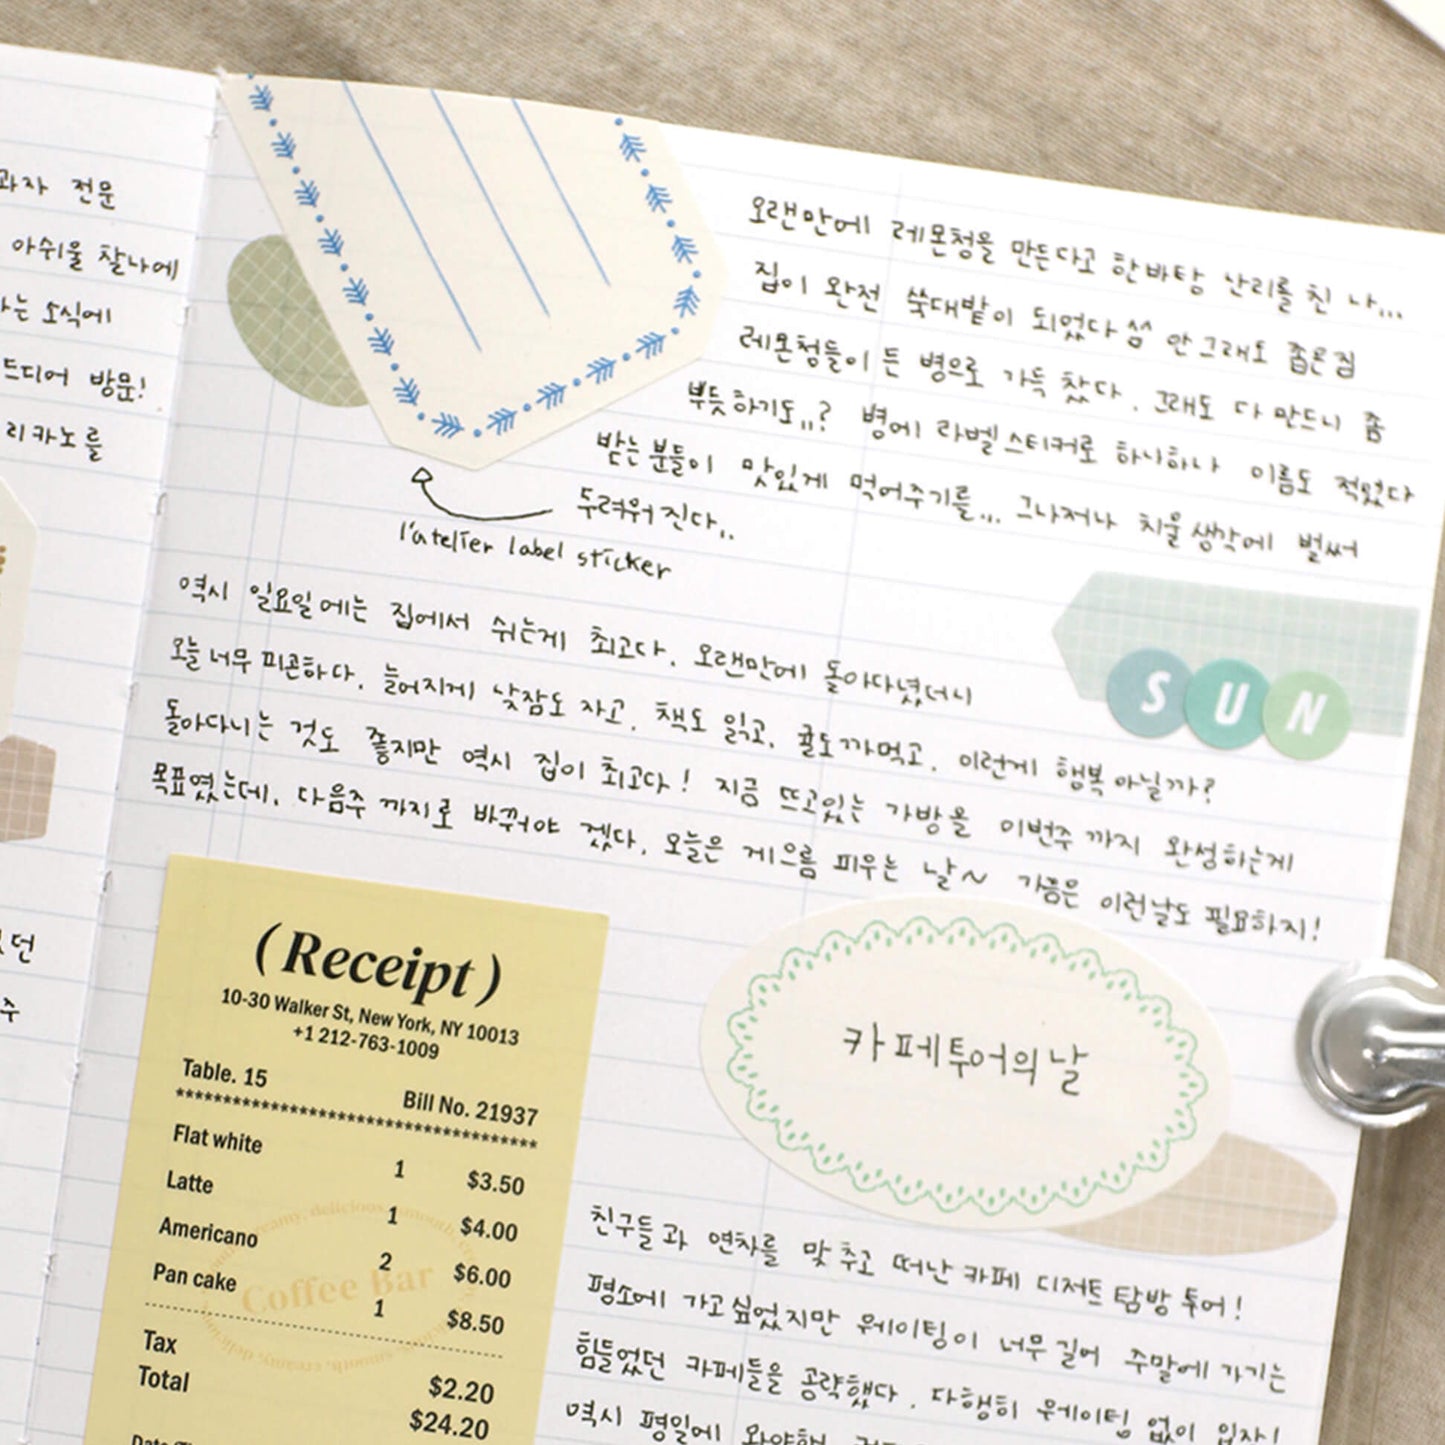 과자 전문
아쉬울 찰나에
하는 소식에
드디어 방문!
리카노를
던
주
오랜만에 레몬청을 만든다고 한바탕 난리를 친 나...
집이 완전 쑥대밭이 되었다 씀 안그래도 좁은집
레몬청들이 든 병으로 가득 찼다. 그래도 다 만드니 좀
뿌듯하기도..? 병에 라벨스티커로 하나하나 이름도 적었다
받는 분들이 맛있게 먹어주기를... 그나저나 치울 생각에 벌써
두려워진다..
l'atelier label sticker
SUN
역시 일요일에는 집에서 쉬는게 최고다. 오랜만에 돌아다녔더니
오늘 너무 피곤하다. 늘어지게 낮잠도 자고, 책도 읽고, 귤도 까먹고. 이런게 행복 아닐까?
돌아다니는 것도 좋지만 역시 집이 최고다! 지금 뜨고있는 가방을 이번주 까지 완성하는게
목표였는데, 다음주 까지로 바꿔야 겠다. 오늘은 게으름 피우는 날~ 가끔은 이런날도 필요하지!
(Receipt)
10-30 Walker St, New York, NY 10013
+1 212-763-1009
Table. 15
Bill No. 21937
****************************************
Flat white 1 $3.50
Latte 1 $4.00
Americano 2 $6.00
Pan cake 1 $8.50
Coffee Bar
Tax $2.20
Total $24.20
카페투어의 날
친구들과 연차를 맞추고 떠난 카페 디저트 탐방 투어!
평소에 가고싶었지만 웨이팅이 너무 길어 주말에 가기는
힘들었던 카페들을 공략했다. 다행히 웨이팅 없이 입장!
역시 평일에